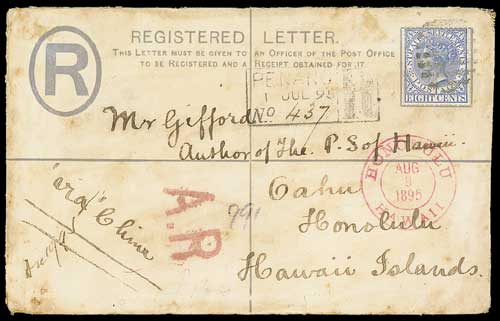 REGISTERED LETTER.
THIS LETTER MUST BE GIVEN TO AN OFFICER OF THE POST OFFICE
TO BE REGISTERED AND A RECEIPT OBTAINED FOR IT.
R
STRAITS SETTLEMENTS
POSTAGE
EIGHT CENTS
PENANG
1 JUL 95
No 437
Mr Gifford
Author of The P. S of Hawaii
Oahu
Honolulu
Hawaii Islands.
HONOLULU
AUG
9
1895
HAWAII
A.R
991
"via" China